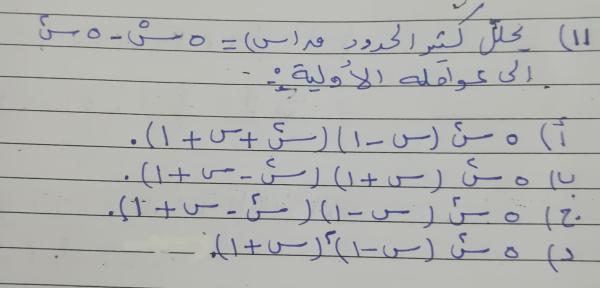 ١١) يحلل كثير الحدود ق(س) = ٥ س⁵ - ٥ س²
إلى عوامله الأولية :-
أ) ٥ س² (س - ١) (س² + س + ١).
ب) ٥ س² (س + ١) (س² - س + ١).
ج) ٥ س² (س - ١) (س² - س + ١).
د) ٥ س² (س - ١)² (س + ١).